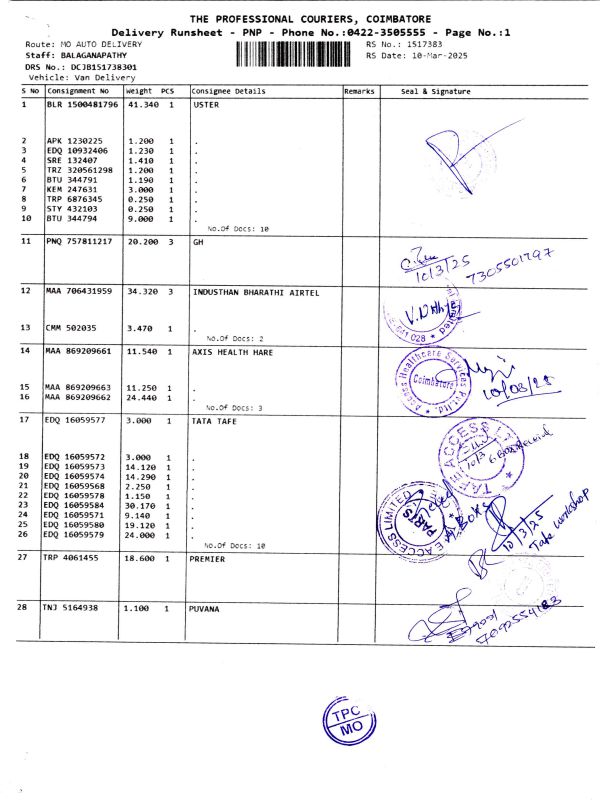 THE PROFESSIONAL COURIERS, COIMBATORE
Delivery Runsheet - PNP - Phone No.:0422-3505555 - Page No.:1
Route: MO AUTO DELIVERY RS No.: 1517383
Staff: BALAGANAPATHY RS Date: 10-Mar-2025
DRS No.: DCJB151738301
Vehicle: Van Delivery
S No Consignment No Weight PCS Consignee Details Remarks Seal & Signature
1 BLR 1500481796 41.340 1 USTER
2 APK 1230225 1.200 1 .
3 EDQ 10932406 1.230 1 .
4 SRE 132407 1.410 1 .
5 TRZ 320561298 1.200 1 .
6 BTU 344791 1.190 1 .
7 KEM 247631 3.000 1 .
8 TRP 6876345 0.250 1 .
9 STY 432103 0.250 1 .
10 BTU 344794 9.000 1 .
No.Of Docs: 10
11 PNQ 757811217 20.200 3 GH
10/3/25 7305501797
12 MAA 706431959 34.320 3 INDUSTHAN BHARATHI AIRTEL
13 CMM 502035 3.470 1 .
No.Of Docs: 2
14 MAA 869209661 11.540 1 AXIS HEALTH HARE
Access Healthcare Services Pvt.Ltd. Coimbatore
10/03/25
15 MAA 869209663 11.250 1 .
16 MAA 869209662 24.440 1 .
No.Of Docs: 3
17 EDQ 16059577 3.000 1 TATA TAFE
10/3
18 EDQ 16059572 3.000 1 .
19 EDQ 16059573 14.120 1 .
20 EDQ 16059574 14.290 1 .
21 EDQ 16059568 2.250 1 .
22 EDQ 16059578 1.150 1 .
23 EDQ 16059584 30.170 1 .
24 EDQ 16059571 9.140 1 .
25 EDQ 16059580 19.120 1 .
26 EDQ 16059579 24.000 1 .
No.Of Docs: 10
ACCESS LIMITED PARTS
10/3/25
Tafe workshop
27 TRP 4061455 18.600 1 PREMIER
28 TNJ 5164938 1.100 1 PUVANA
TPC
MO